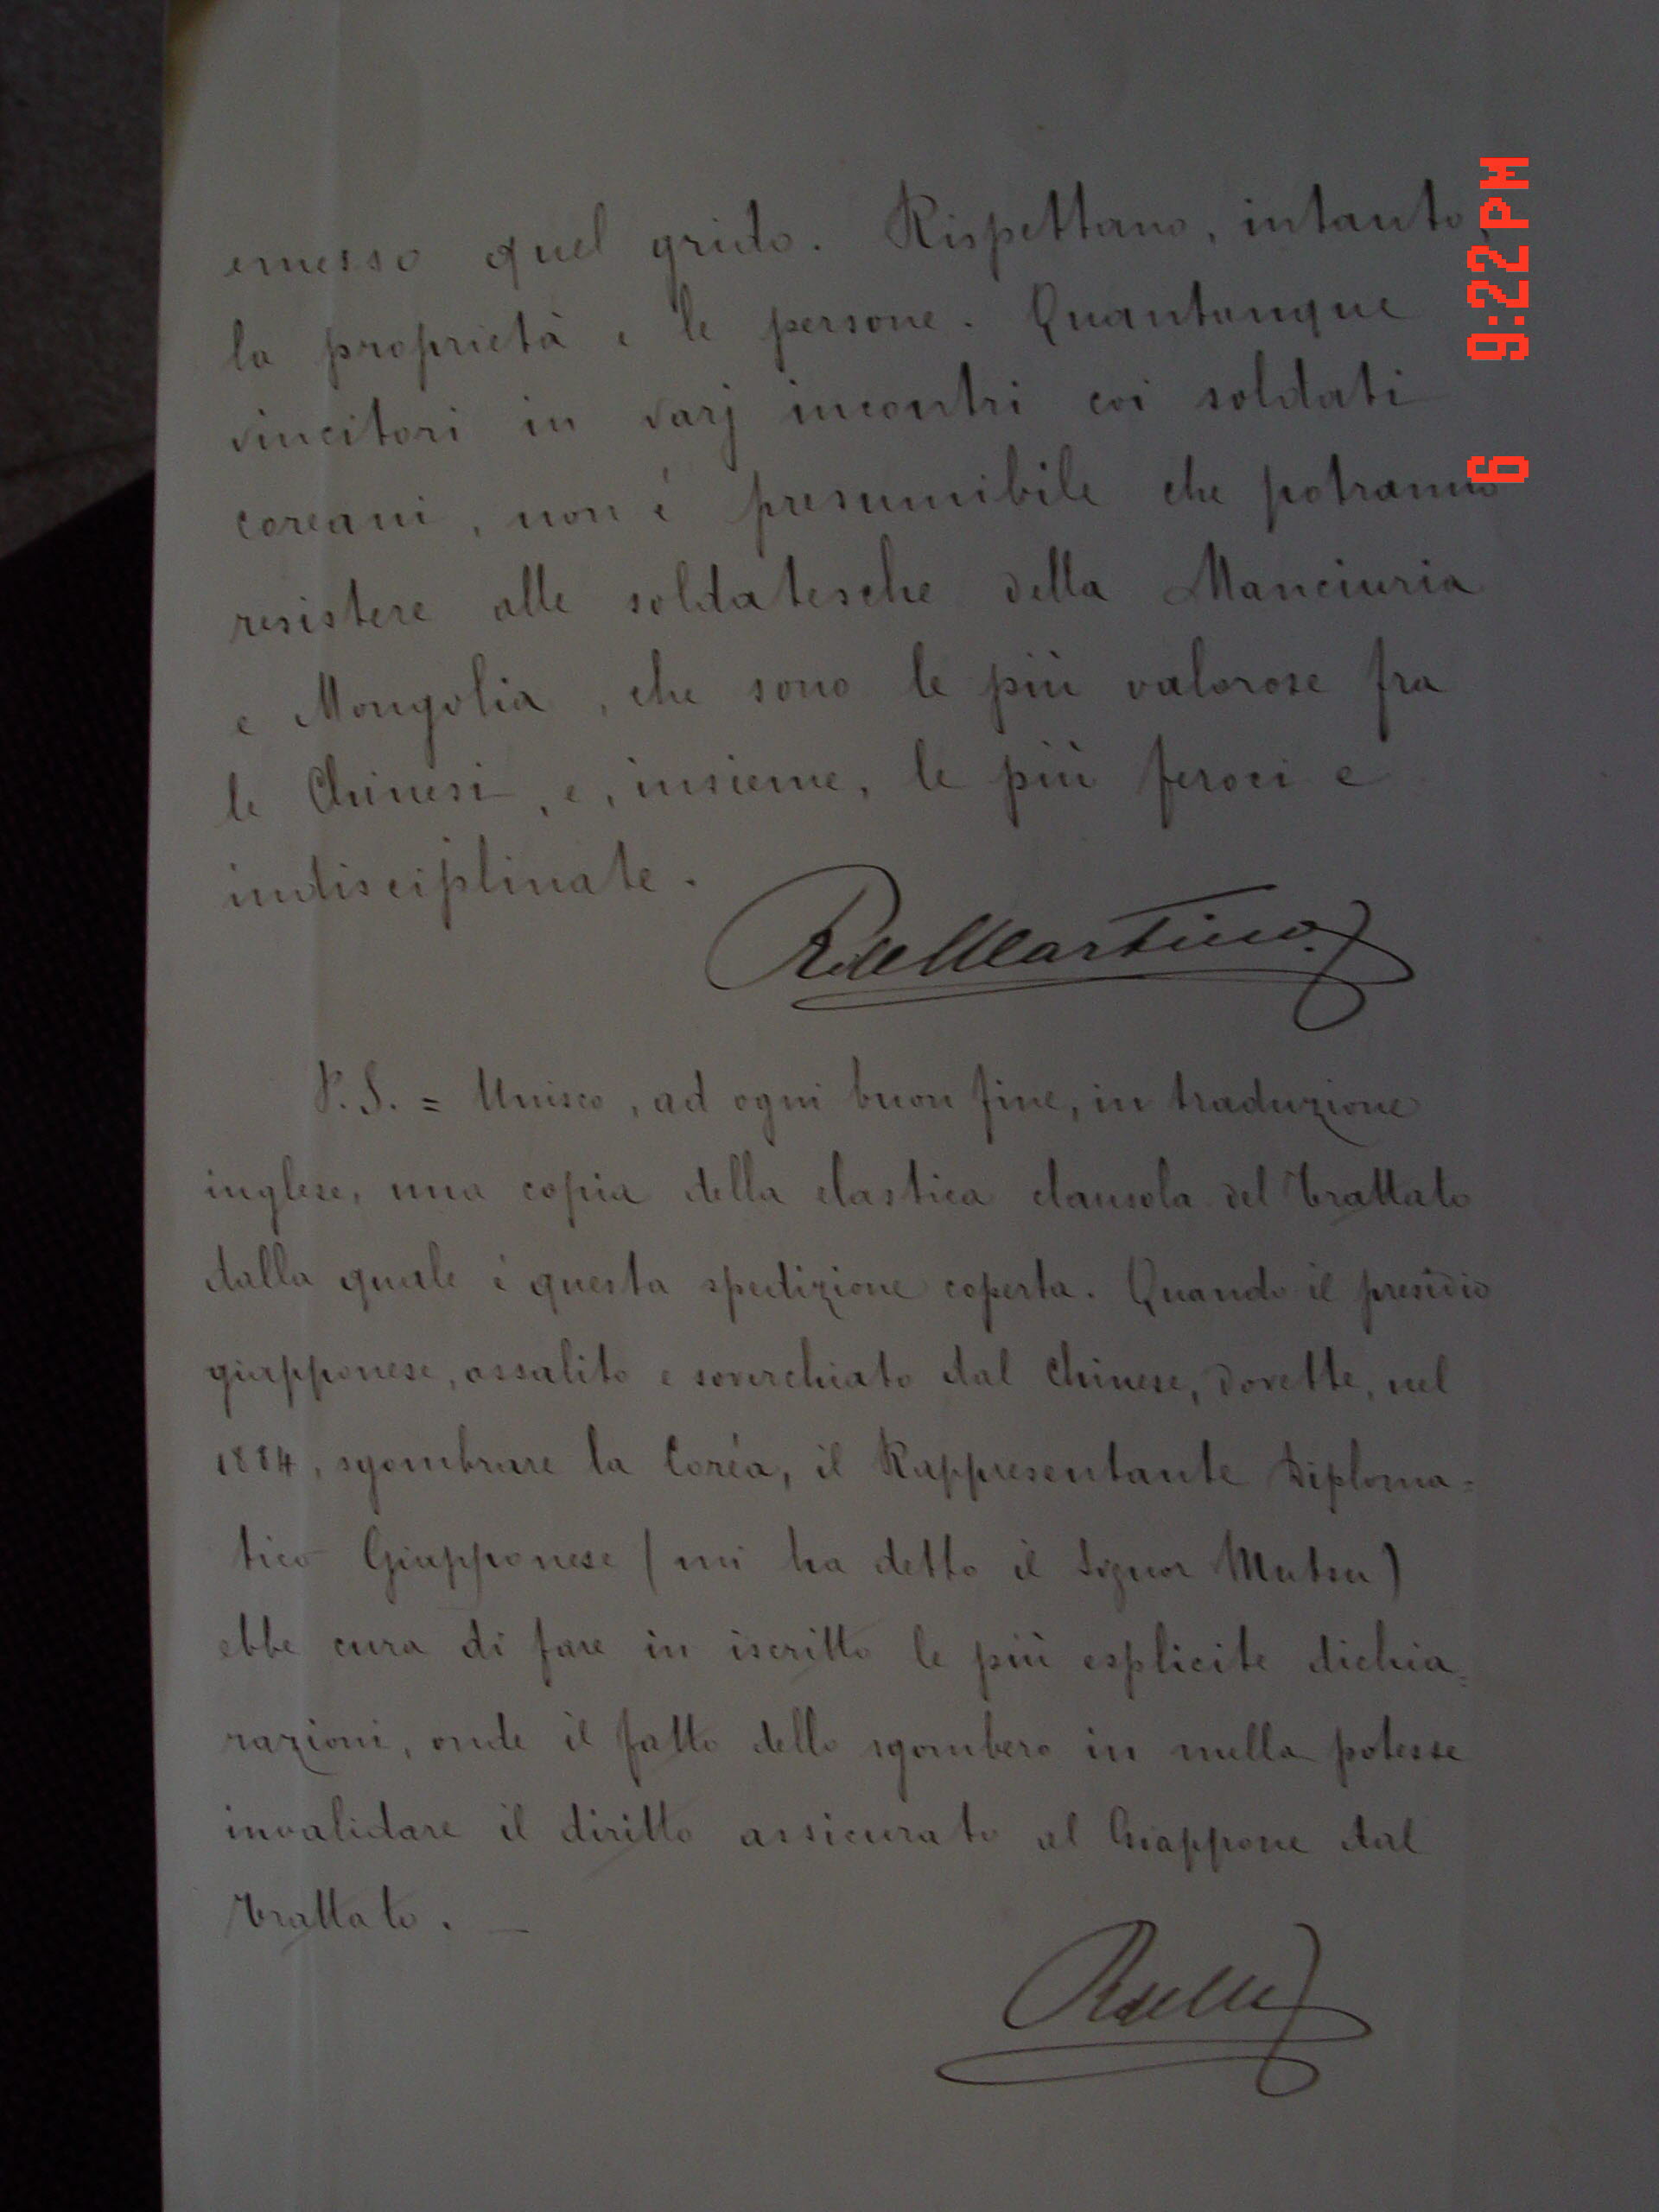 emesso quel grido. Rispettano, intanto,
la proprietà e le persone. Quantunque
vincitori in varj incontri coi soldati
coreani, non è presumibile che potranno
resistere alle soldatesche della Manciuria
e Mongolia, che sono le più valorose fra
le Chinesi, e, insieme, le più feroci e
indisciplinate.
R de Martino.
P.S. = Unisco, ad ogni buon fine, in traduzione
inglese, una copia della elastica clausola del Trattato
dalla quale è questa spedizione coperta. Quando il presidio
giapponese, assalito e soverchiato dal Chinese, dovette, nel
1884, sgombrare la Coréa, il Rappresentante Diploma=
tico Giapponese (mi ha detto il Signor Mutsu)
ebbe cura di fare in iscritto le più esplicite dichia=
razioni, onde il fatto dello sgombero in nulla potesse
invalidare il diritto assicurato al Giappone dal
Trattato. —
RdeM
6 9:22PM